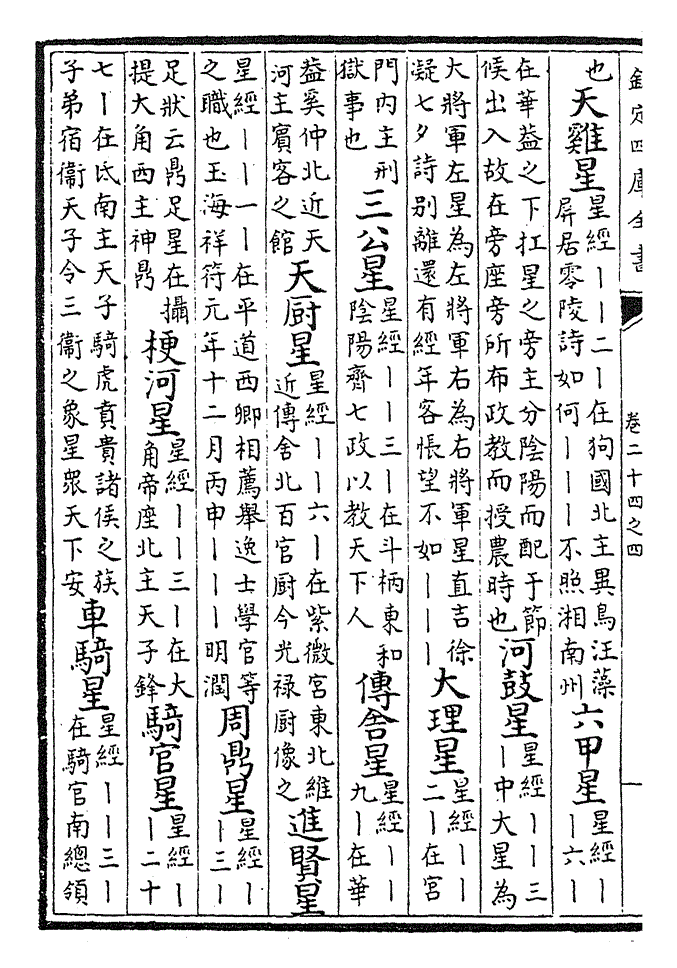 欽定四庫全書
卷二十四之四
也
天雞星
星經丨丨二丨在狗國北主異鳥汪藻
屏居零陵詩如何丨丨丨不照湘南州
六甲星
星經丨
丨六丨
在華蓋之下扛星之旁主分陰陽而配于節
候出入故在旁座旁所布政教而授農時也
河鼓星
星經丨丨三
丨中大星為
大將軍左星為左將軍右為右將軍星直吉徐
凝七夕詩別離還有經年客悵望不如丨丨丨
大理星
星經丨丨
二丨在宮
門内主刑
獄事也
三公星
星經丨丨三丨在斗柄東和
陰陽齊七政以教天下人
傳舍星
星經丨丨
九丨在華
葢奚仲北近天
河主賓客之館
天厨星
星經丨丨六丨在紫微宮東北維
近傳舍北百官厨今光禄厨像之
進賢星
星經丨丨一丨在平道西卿相薦舉逸士學官等
之職也玉海祥符元年十二月丙申丨丨丨明潤
周鼎星
星經丨
丨三丨
足狀云鼎足星在攝
提大角西主神鼎
梗河星
星經丨丨三丨在大
角帝座北主天子鋒
騎官星
星經丨
丨二十
七丨在氐南主天子騎虎賁貴諸侯之族
子弟宿衞天子令三衞之象星眾天下安
車騎星
星經丨丨三丨
在騎官南總領